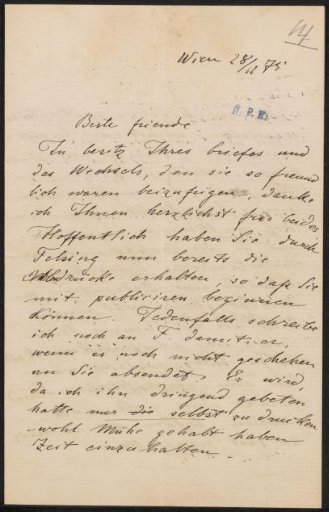 14
Wien 28/11 75
R. P. K.
Beste friende
In besitz Ihres briefes und
des Wechsels, den sie so freund
lich waren beizufügen, danke
ich Ihnen herzlichst für beides
Hoffentlich haben Sie durch
Felsing nun bereits die
Abdrücke erhalten, so daß Sie
mit publiciren beginnen
können. Jedenfalls schreibe
ich noch an F. damit er,
wenn es noch nicht geschehen
an Sie absendet. Er wird,
da ich ihn dringend gebeten
hatte nur die selbst zu drucken
wohl Mühe gehabt haben
Zeit einzuhalten.